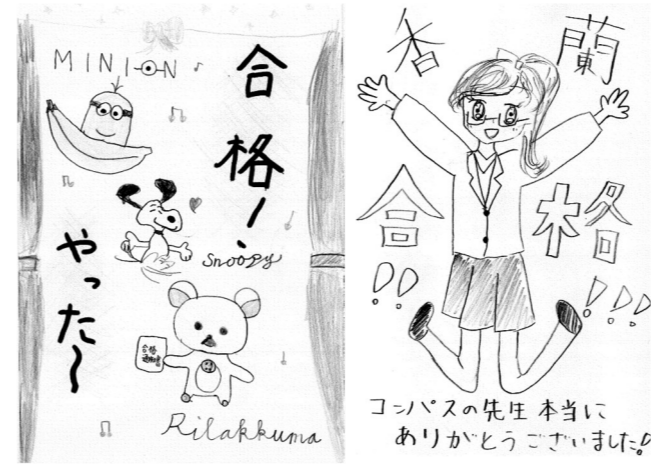 MINION
合格!
やった〜
Snoopy
合格
Rilakkuma
香蘭
合格
!!
!!!!
コンパスの先生本当に
ありがとうございました!!